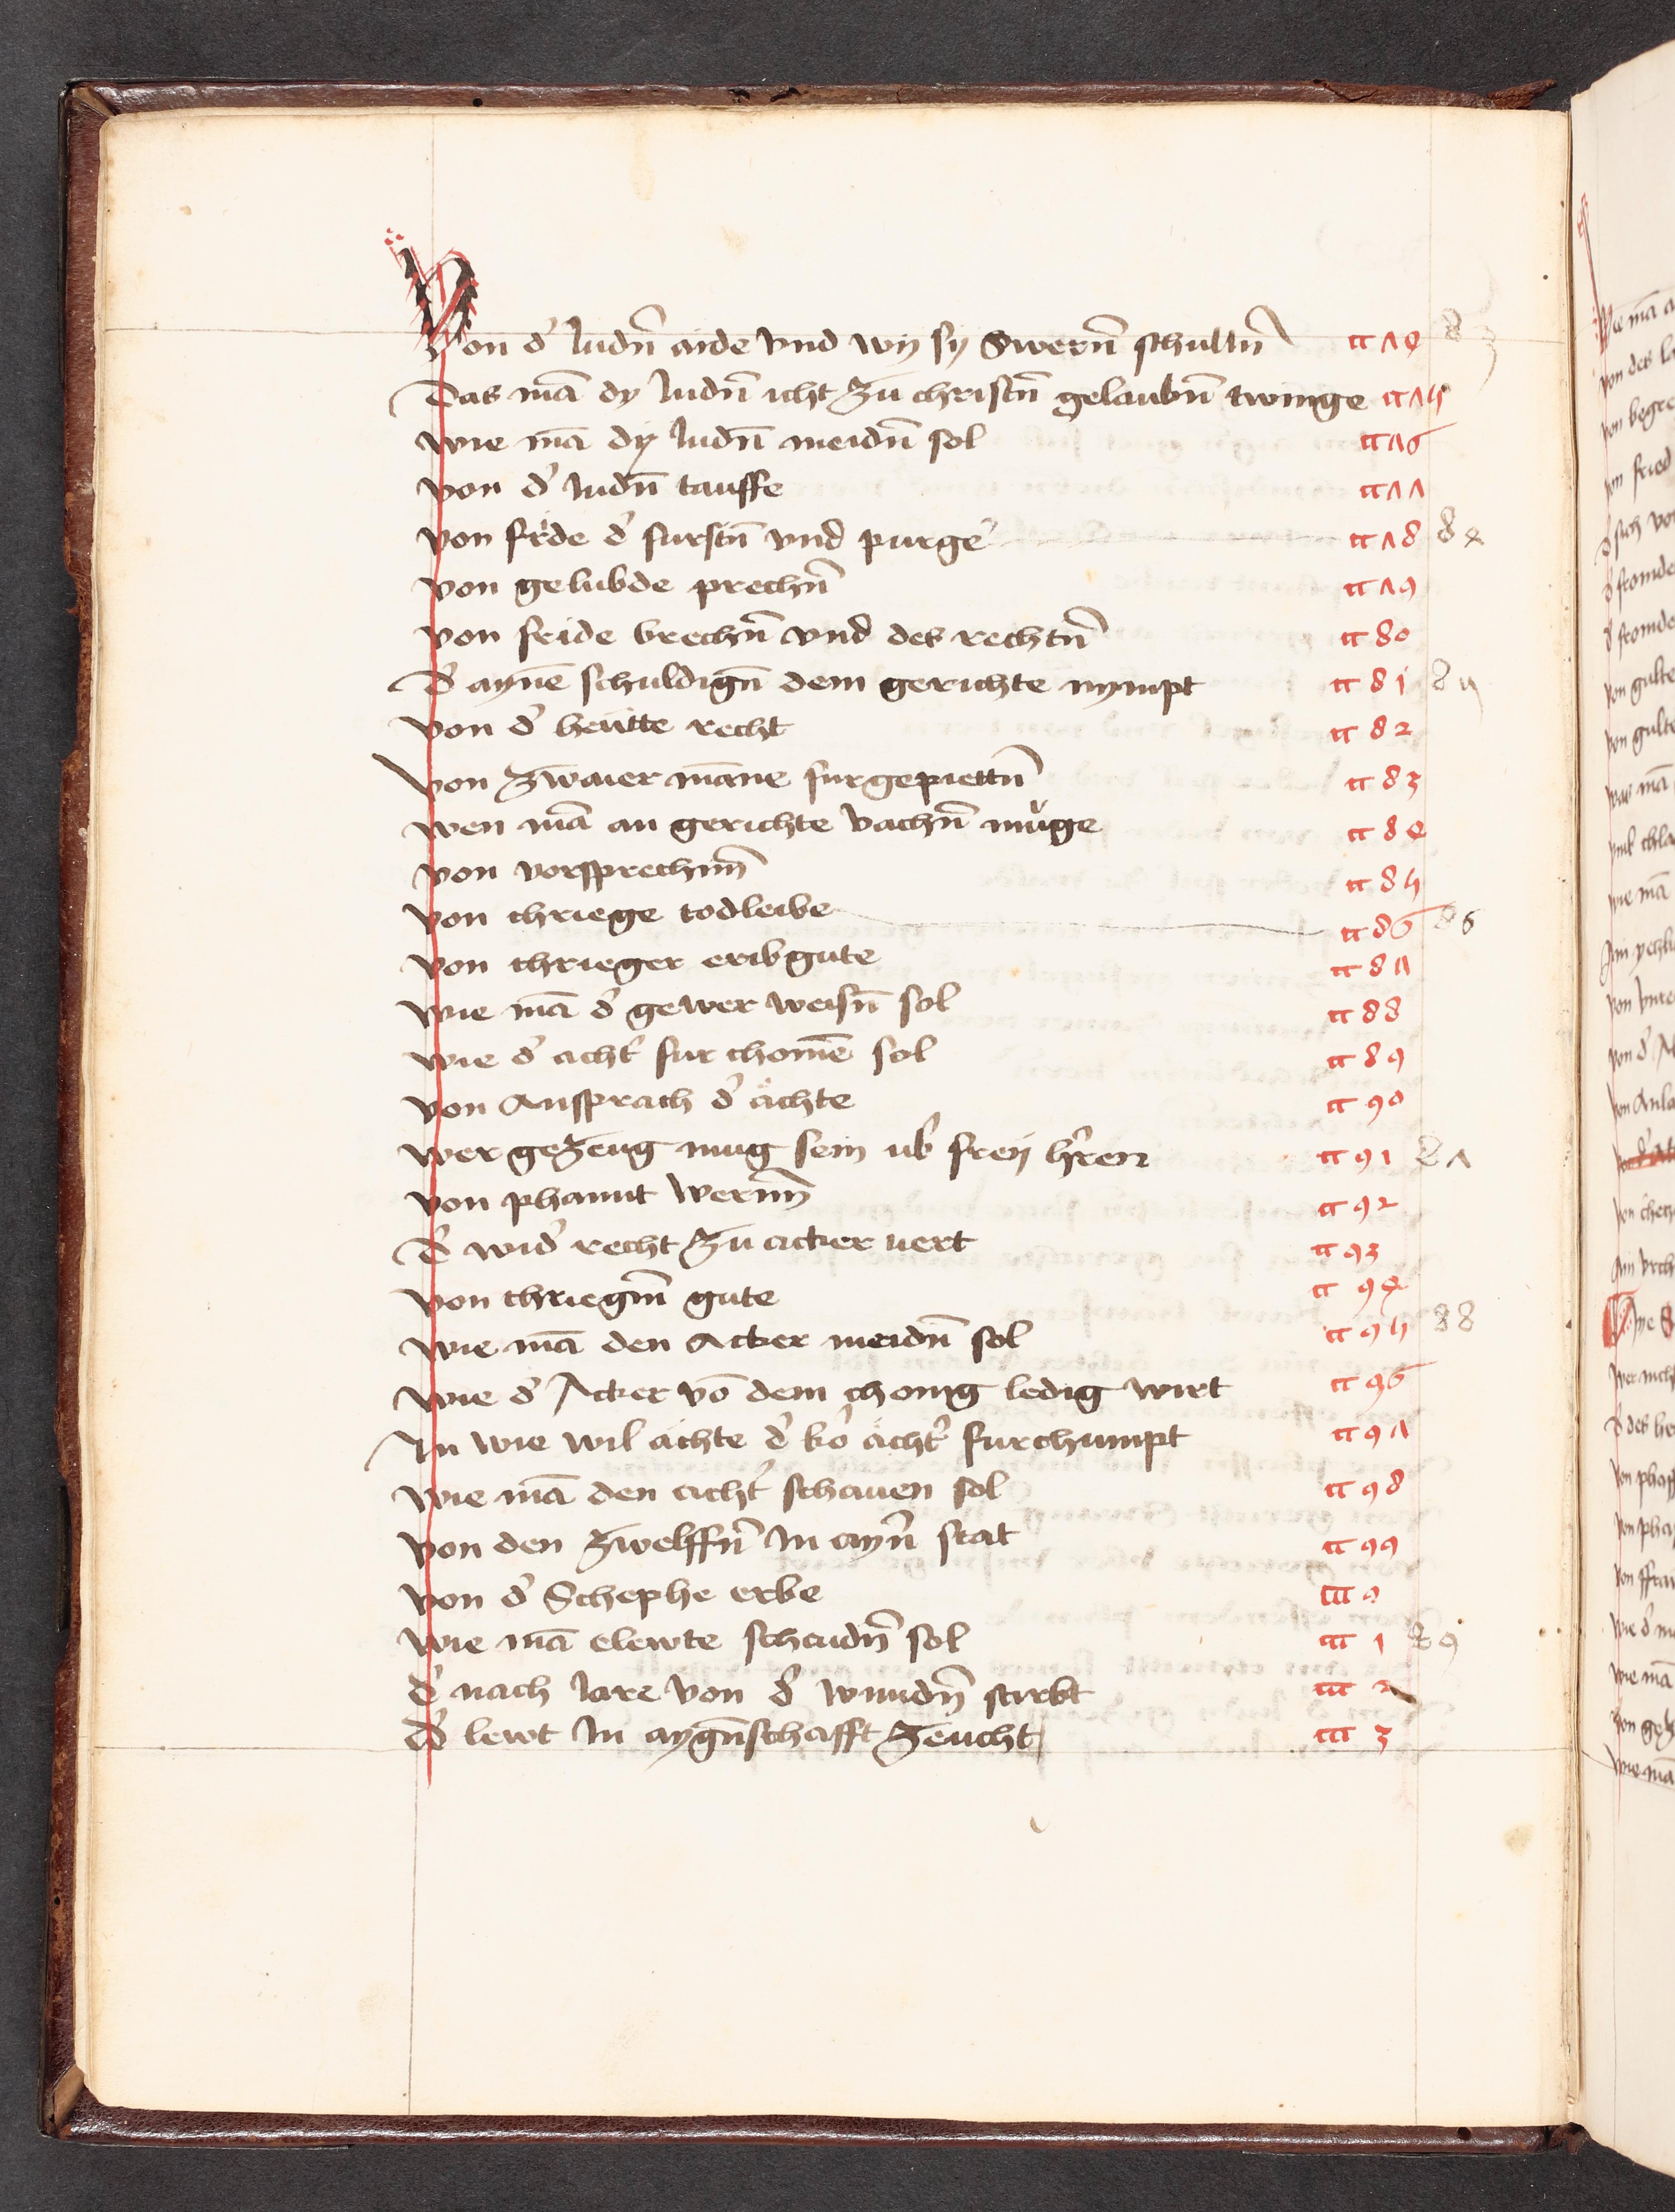 Von d' Judn̄ aide vnd wy sy Swern̄ schulln̄ cc Λ4 83
Das mā dy Judn̄ icht zu christn̄ gelaubn̄ twinge cc Λ5
wie mā dy Judn̄ meidn̄ sol cc Λ6
von d' Judn̄ tauffe cc ΛΛ
von fride d' furstn̄ vnd purge' cc Λ8 84
von gelubde prechn̄ cc Λ9
von fride brechn̄ vnd des rechtn̄ cc 80
D' aynē schuldign̄ dem gerichte nympt cc 81 85
von d' heutte recht cc 82
von zwaier māne furgepiettn̄ cc 83
wen mā an gerichte vachn̄ muge cc 84
von vorsprechnn̄ cc 85
von chriege todleibe cc 86 86
von chrieger eribgute cc 8Λ
wie mā d' gewer weisn̄ sol cc 88
wie d' acht' fur chomē sol cc 89
von Ansprach d' ächte cc 90
wer gezeug mug sein ub' freij h'ren cc 91 8Λ
von phannt wernn̄ cc 92
D' wid' recht zu acker uert cc 93
von chriegm̄ gute cc 94
wie mā den Acker meidn̄ sol cc 95 88
wie d' Acker vō dem chonig ledig wirt cc 96
In wie wil ächte d' ko' ächt' furchumpt cc 9Λ
wie mā den acht' schauen sol cc 98
von den zwelffn̄ In ayn̄ stat cc 99
von d' Schephe erbe ccc 0
wie mā elewte schaidn̄ sol ccc 1 89
D' nach Jare von d' wundn̄ stirbt ccc 2
D' lewt In aygn̄schafft zeucht ccc 3